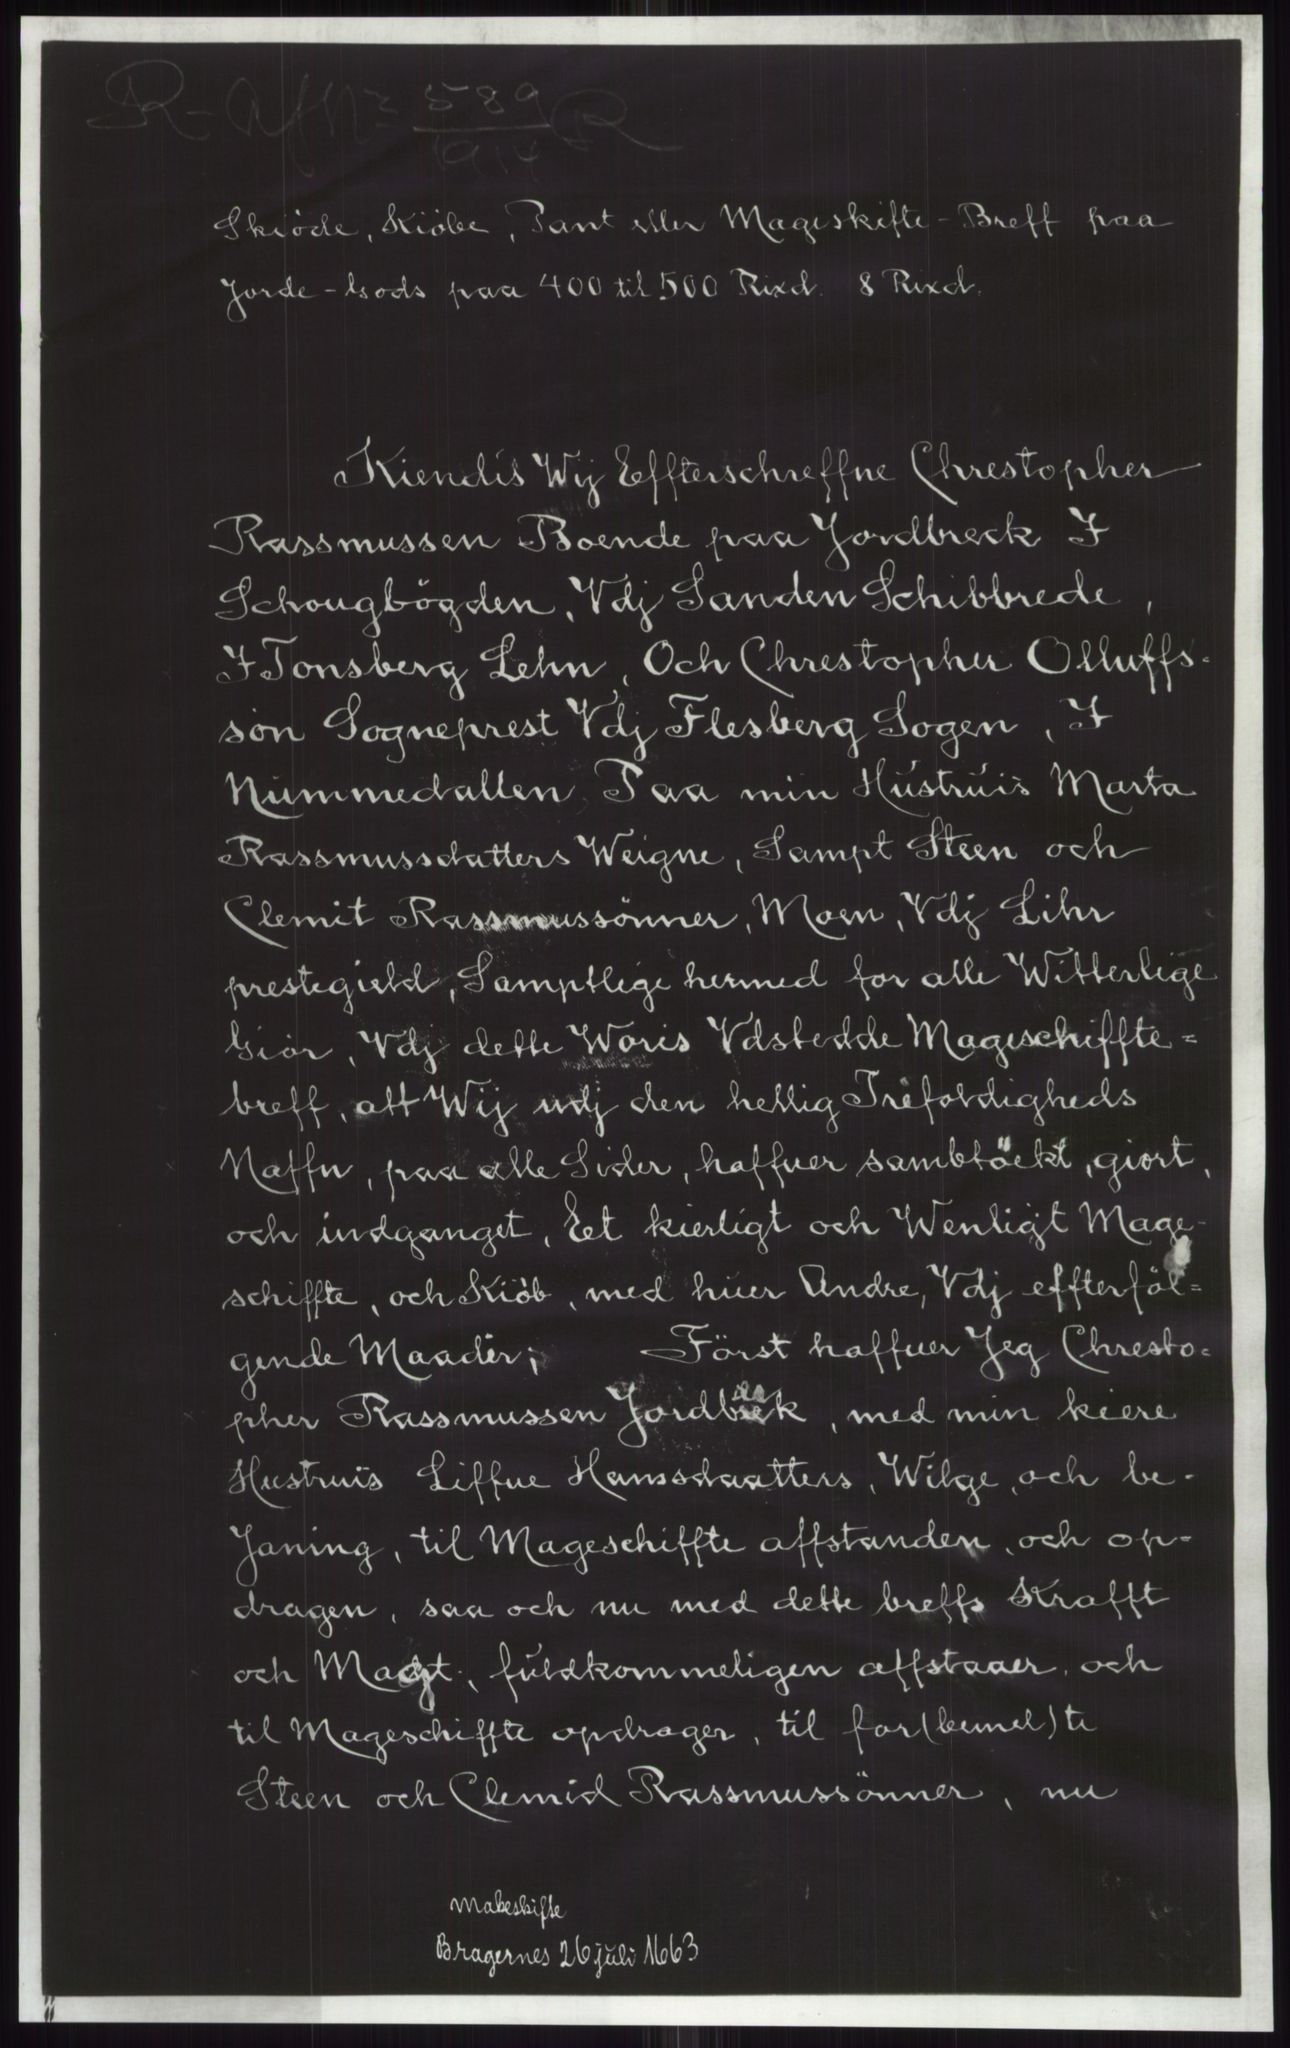 589
1914
Skiöde, Kiöbe, Pant eller Mageskifte-Breff paa
Jorde-Gods paa 400 til 500 Rixd. 8 Rixd.
Kiendis Wij Effterschreffne Chrestopher
Rassmussen Boende paa Jordbreck I
Schougbögden, Vdj Sanden Schibbrede,
I Tonsberg Lehn, Och Chrestopher Olluffs-
sön Sogneprest Vdj Flesberg Sogen, I
Nummedallen, Paa min Hustruis Marta
Rassmussdatters Weigne, Sampt Steen och
Clemit Rassmussönner, Moen, Vdj Lihr
prestegield, Samptlige hermed for alle Witterlige
Giör, Vdj dette Woris Vdstedde Mageschiffte=
breff, att Wij udj den hellig Trefoldigheds
Naffn, paa alle Sider, haffuer sambtöckt, giort,
och indganget, Eet kierligt och Wenligt Mage-
schiffte, och Kiöb, med huer Andre, Vdj effterföl=
gende Maader; Först haffuer Jeg Chresto=
pher Rassmussen Jordbrek, med min kiere
Hustruis Liffue Hanssdaatters, Wilge, och be-
Janing, til Mageschiffte affstanden, och op-
dragen, saa och nu med dette breffs Krafft
och Magt, fuldkommeligen affstaaer, och
til Mageschiffte opdrager, til for(bemel)te
Steen och Clemid Rassmussönner, nu
Makeskifte
Bragernes 26 juli 1663